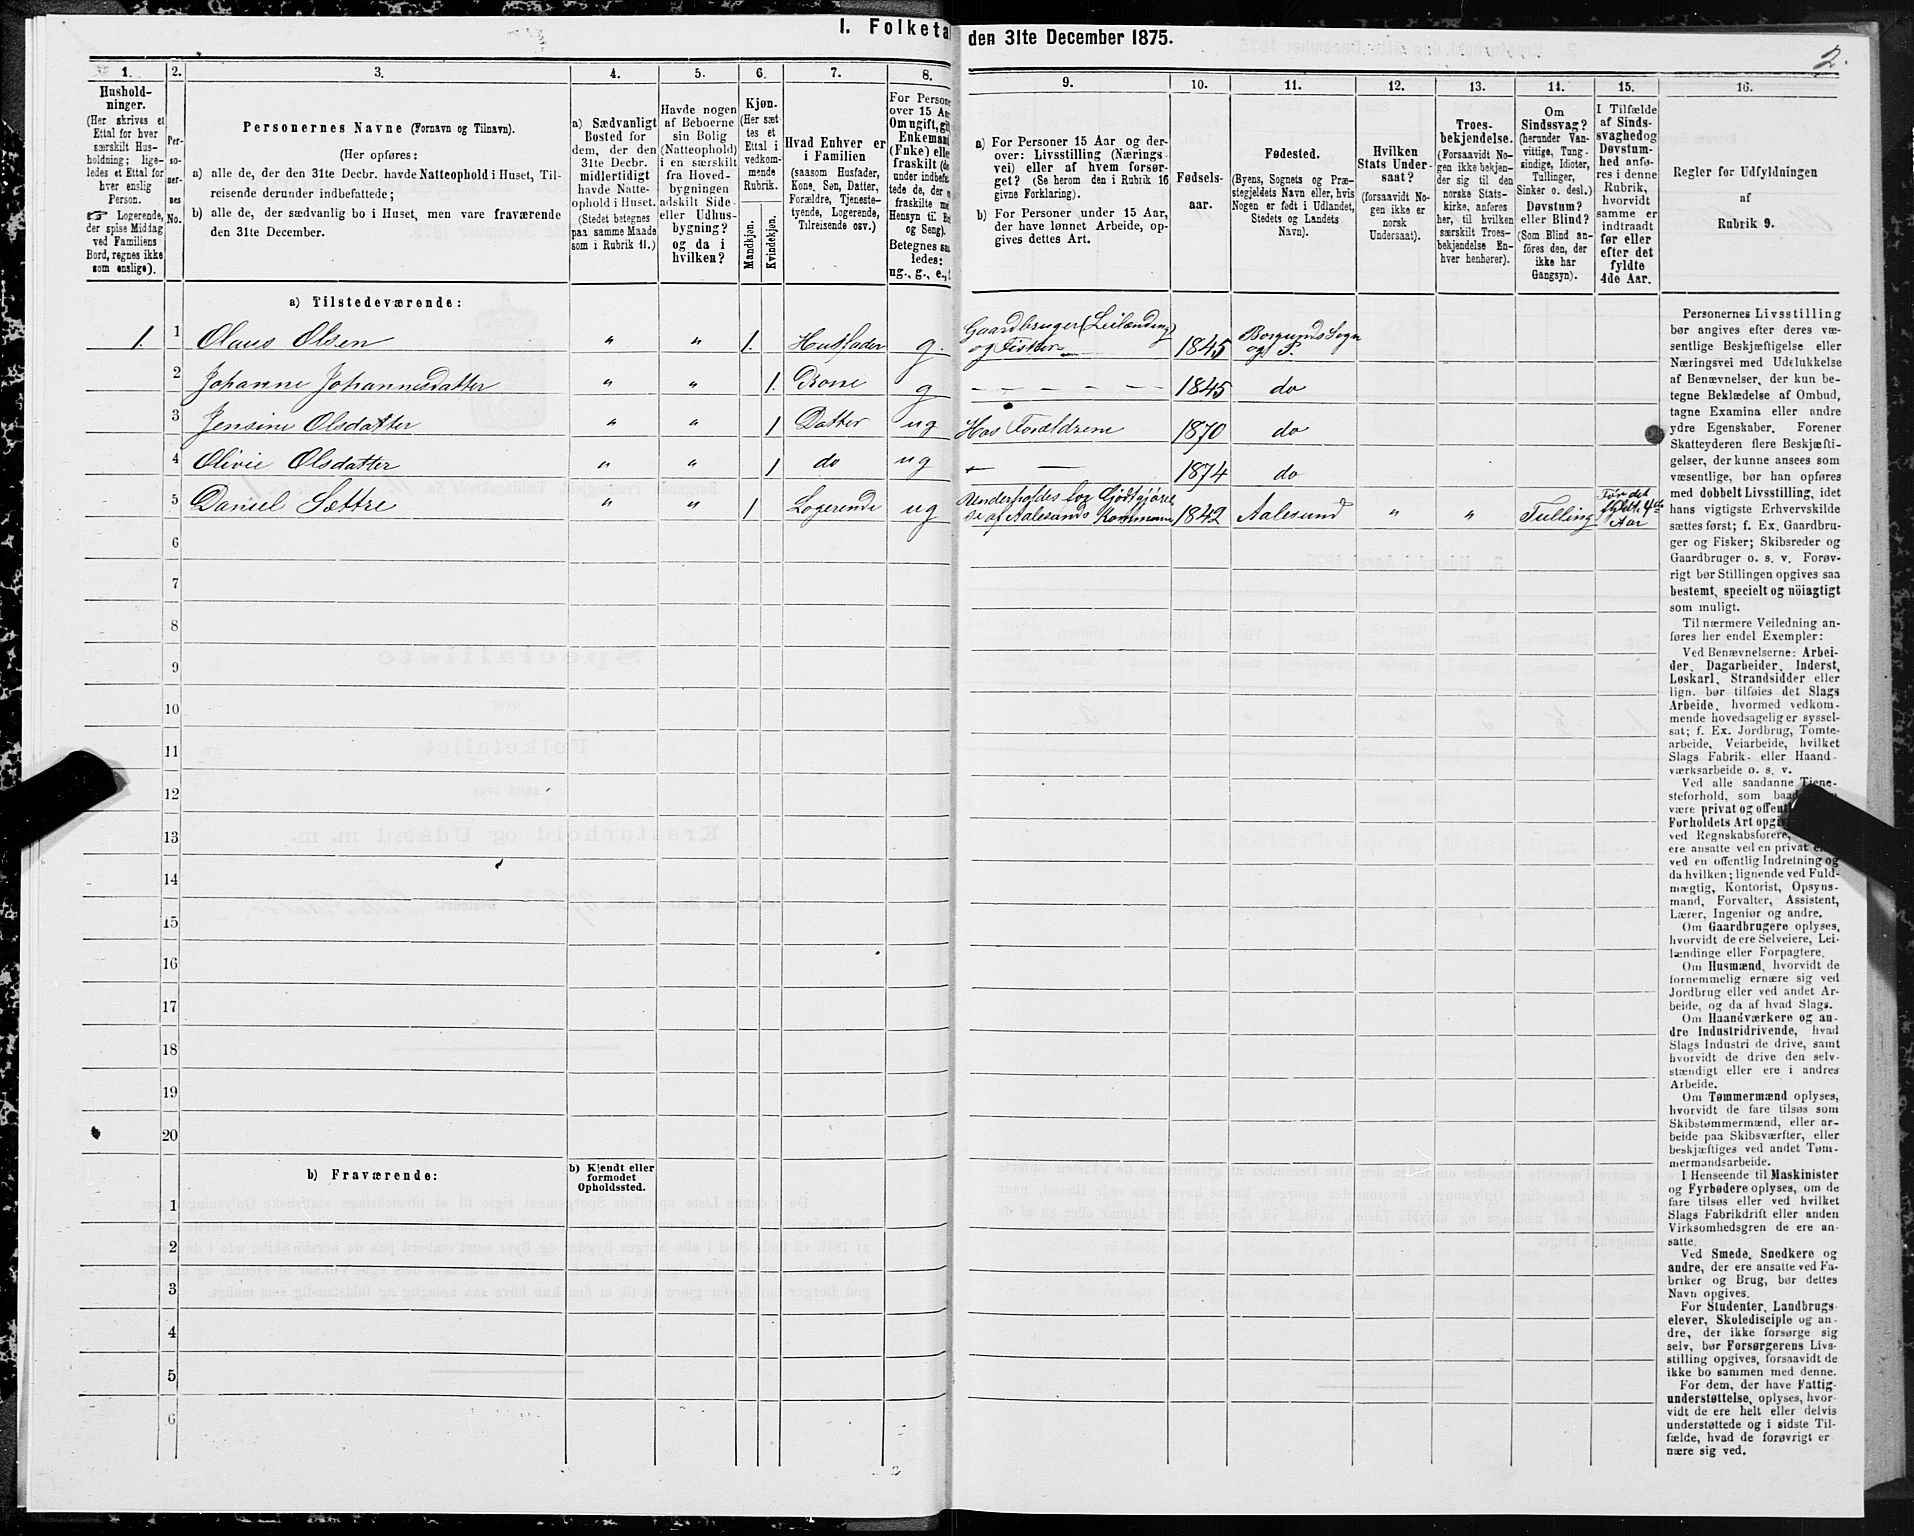 I. Folketa
den 31te December 1875.
2.
1. 2. 3. 4. 5. 6. 7. 8. 9. 10. 11. 12. 13. 14. 15. 16.
Hushold-
ninger.
(Her skrives et
Ettal for hver
særskilt Hus-
holdning; lige-
ledes et Ettal for
hver enslig
Person.
☞ Logerende,
der spise Middag
ved Familiens
Bord, regnes ikke
som enslige).
Per-
so-
ner-
nes
No.
Personernes Navne (Fornavn og Tilnavn).
(Her opføres:
a) alle de, der den 31te Decbr. havde Natteophold i Huset, Til-
reisende derunder indbefattede;
b) alle de, der sædvanlig bo i Huset, men vare fraværende
den 31te December.
a) Sædvanligt
Bosted for
dem, der den
31te Decbr.
midlertidigt
havde Natte-
ophold i Huset.
(Stedet betegnes
paa samme Maade
som i Rubrik 11.)
Havde nogen
af Beboerne
sin Bolig
(Natteophold)
i en særskilt
fra Hoved-
bygningen
adskilt Side-
eller Udhus-
bygning?
og da i
hvilken?
Kjøn.
(Her sæt-
tes et
Ettal i
vedkom-
mende
Rubrik.
Mandkjøn.
Kvindekjøn.
Hvad Enhver er
i Familien
(saasom Husfader,
Kone, Søn, Datter,
Forældre, Tjeneste-
tyende, Logerende,
Tilreisende osv.)
For Person
over 15 Aa
Om ugift, gif
Enkemand
(Enke) elle
fraskilt (de
under indbefat
tede de, der e
fraskilte me
Hensyn til Bo
og Seng).
Betegnes saa
ledes:
ug., g., e.,
a) For Personer 15 Aar og der-
over: Livsstilling (Nærings-
vei) eller af hvem forsør-
get? (Se herom den i Rubrik 16
givne Forklaring).
b) For Personer under 15 Aar,
der have lønnet Arbeide, op-
gives dettes Art.
Fødsels-
aar.
Fødested.
(Byens, Sognets og Præ-
stegjeldets Navn eller, hvis
Nogen er født i Udlandet,
Stedets og Landets
Navn).
Hvilken
Stats Under-
saat?
(forsaavidt No-
gen ikke er
norsk
Undersaat).
Troes-
bekjendelse.
(Forsaavidt No-
gen ikke bekjen-
der sig til den
norske Stats-
kirke, anføres
her, til hvilken
særskilt Troes-
bekjendelse En-
hver henhører).
Om
Sindssvag?
(herunder Van-
vittige, Tung-
sindige, Idioter,
Tullinger,
Sinker o. desl.)
Døvstum?
eller Blind?
(Som Blind an-
føres den, der
ikke har
Gangsyn).
I Tilfælde
af Sinds-
svaghed og
Døvstum-
hed anfø-
res i denne
Rubrik,
hvorvidt
samme er
indtraadt
før eller
efter det
fyldte
4de Aar.
Regler for Udfyldningen
af
Rubrik 9.
a) Tilstedeværende:
1. 1 Olaus Olsen " " 1. Husfader g. Gaardbruger (Leilænding) og Fisker 1845 Borgunds Sogn og P.
2 Johanne Johannesdatter " " 1. Kone g – – – – – 1845 do
3 Jensine Olsdatter " " 1 Datter ug Hos Forældrene 1870 do
4 Olivie Olsdatter " " 1 do ug – – 1874 do
5 Daniel Sættre " " 1 Logerende ug af Aalesunds Kommune 1842 Aalesund " " Tulling Før det fyldte 4de Aar
6
7
8
9
10
11
12
13
14
15
16
17
18
19
20
b) Fraværende:
b) Kjendt eller
formodet
Opholdssted.
1
2
3
4
5
6
Personernes Livsstilling
bør angives efter deres væ-
sentlige Beskjæftigelse eller
Næringsvei med Udelukkelse
af Benævnelser, der kun be-
tegne Beklædelse af Ombud,
tagne Examina eller andre
ydre Egenskaber. Forener
Skatteyderen flere Beskjæfti-
gelser, der kunne ansees som
væsentlige, bør han opføres
med dobbelt Livsstilling, idet
hans vigtigste Erhvervskilde
sættes først; f. Ex. Gaardbru-
ger og Fisker; Skibsreder og
Gaardbruger o. s. v. Forøv-
rigt bør Stillingen opgives saa
bestemt, specielt og nöiagtigt
som muligt.
Til nærmere Veiledning an-
føres her endel Exempler:
Ved Benævnelserne: Arbei-
der, Dagarbeider, Inderst,
Løskarl, Strandsidder eller
lign. bør tilføies det Slags
Arbeide, hvormed vedkom-
mende hovedsagelig er syssel-
sat; f. Ex. Jordbrug, Tomte-
arbeide, Veiarbeide, hvilket
Slags Fabrik- eller Haand-
værksarbeide o. s. v.
Ved alle saadanne Tjene-
steforhold, som
være privat og
Forholdets Art
ved Regnskabsførere,
ere ansatte ved en privat
ved en offentlig Indretning og
da hvilken; lignende ved Fuld-
mægtig, Kontorist, Opsyns-
mand, Forvalter, Assistent,
Lærer, Ingeniør og andre.
Om Gaardbrugere oplyses,
hvorvidt de ere Selveiere, Lei-
lændinge eller Forpagtere.
Om Husmænd, hvorvidt de
fornemmelig ernære sig ved
Jordbrug eller ved andet Ar-
beide, og da af hvad Slags.
Om Haandværkere og an-
dre Industridrivende, hvad
Slags Industri de drive, samt
hvorvidt de drive den selv-
stændigt eller ere i andres
Arbeide.
Om Tømmermænd oplyses,
hvorvidt de fare tilsøs som
Skibstømmermænd, eller ar-
beide paa Skibsværfter, eller
beskjæftiges ved andet Tøm-
mermandsarbeide.
I Henseende til Maskinister
og Fyrbødere oplyses, om de
fare tilsøs eller ved hvilket
Slags Fabrikdrift eller anden
Virksomhedsgren de ere an-
satte.
Ved Smede, Snedkere og
andre, der ere ansatte ved Fa-
briker og Brug, bør dettes
Navn opgives.
For Studenter, Landbrugs-
elever, Skoledisciple og an-
dre, der ikke forsørge sig
selv, bør Forsørgerens Livs-
stilling opgives, forsaavidt de
ikke bo sammen med denne.
For dem, der have Fattig-
understøttelse, oplyses, hvor-
vidt de ere helt eller delvis
understøttede og i sidste Til-
fælde, hvad de forøvrigt er-
nære sig ved.